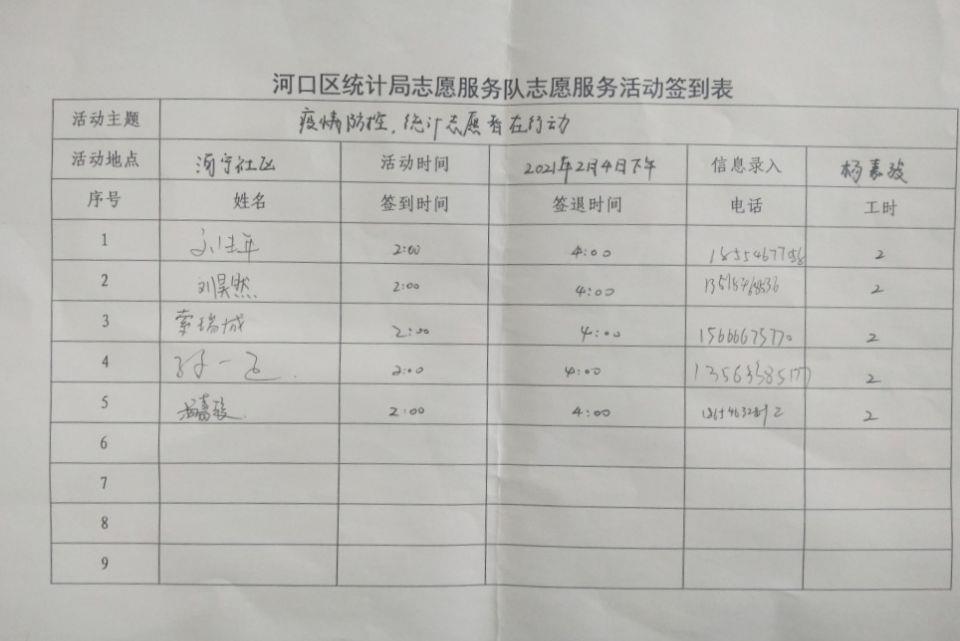 河口区统计局志愿服务队志愿服务活动签到表
活动主题 疫情防控,统计志愿者在行动
活动地点 河宁社区 活动时间 2021年2月4日下午 信息录入 杨嘉骏
序号 姓名 签到时间 签退时间 电话 工时
1 2:00 4:00 2
2 刘昊然 2:00 4:00 2
3 索瑞城 2:00 4:00 15666675770 2
4 孙一 2:00 4:00 2
5 杨嘉骏 2:00 4:00 2
6
7
8
9